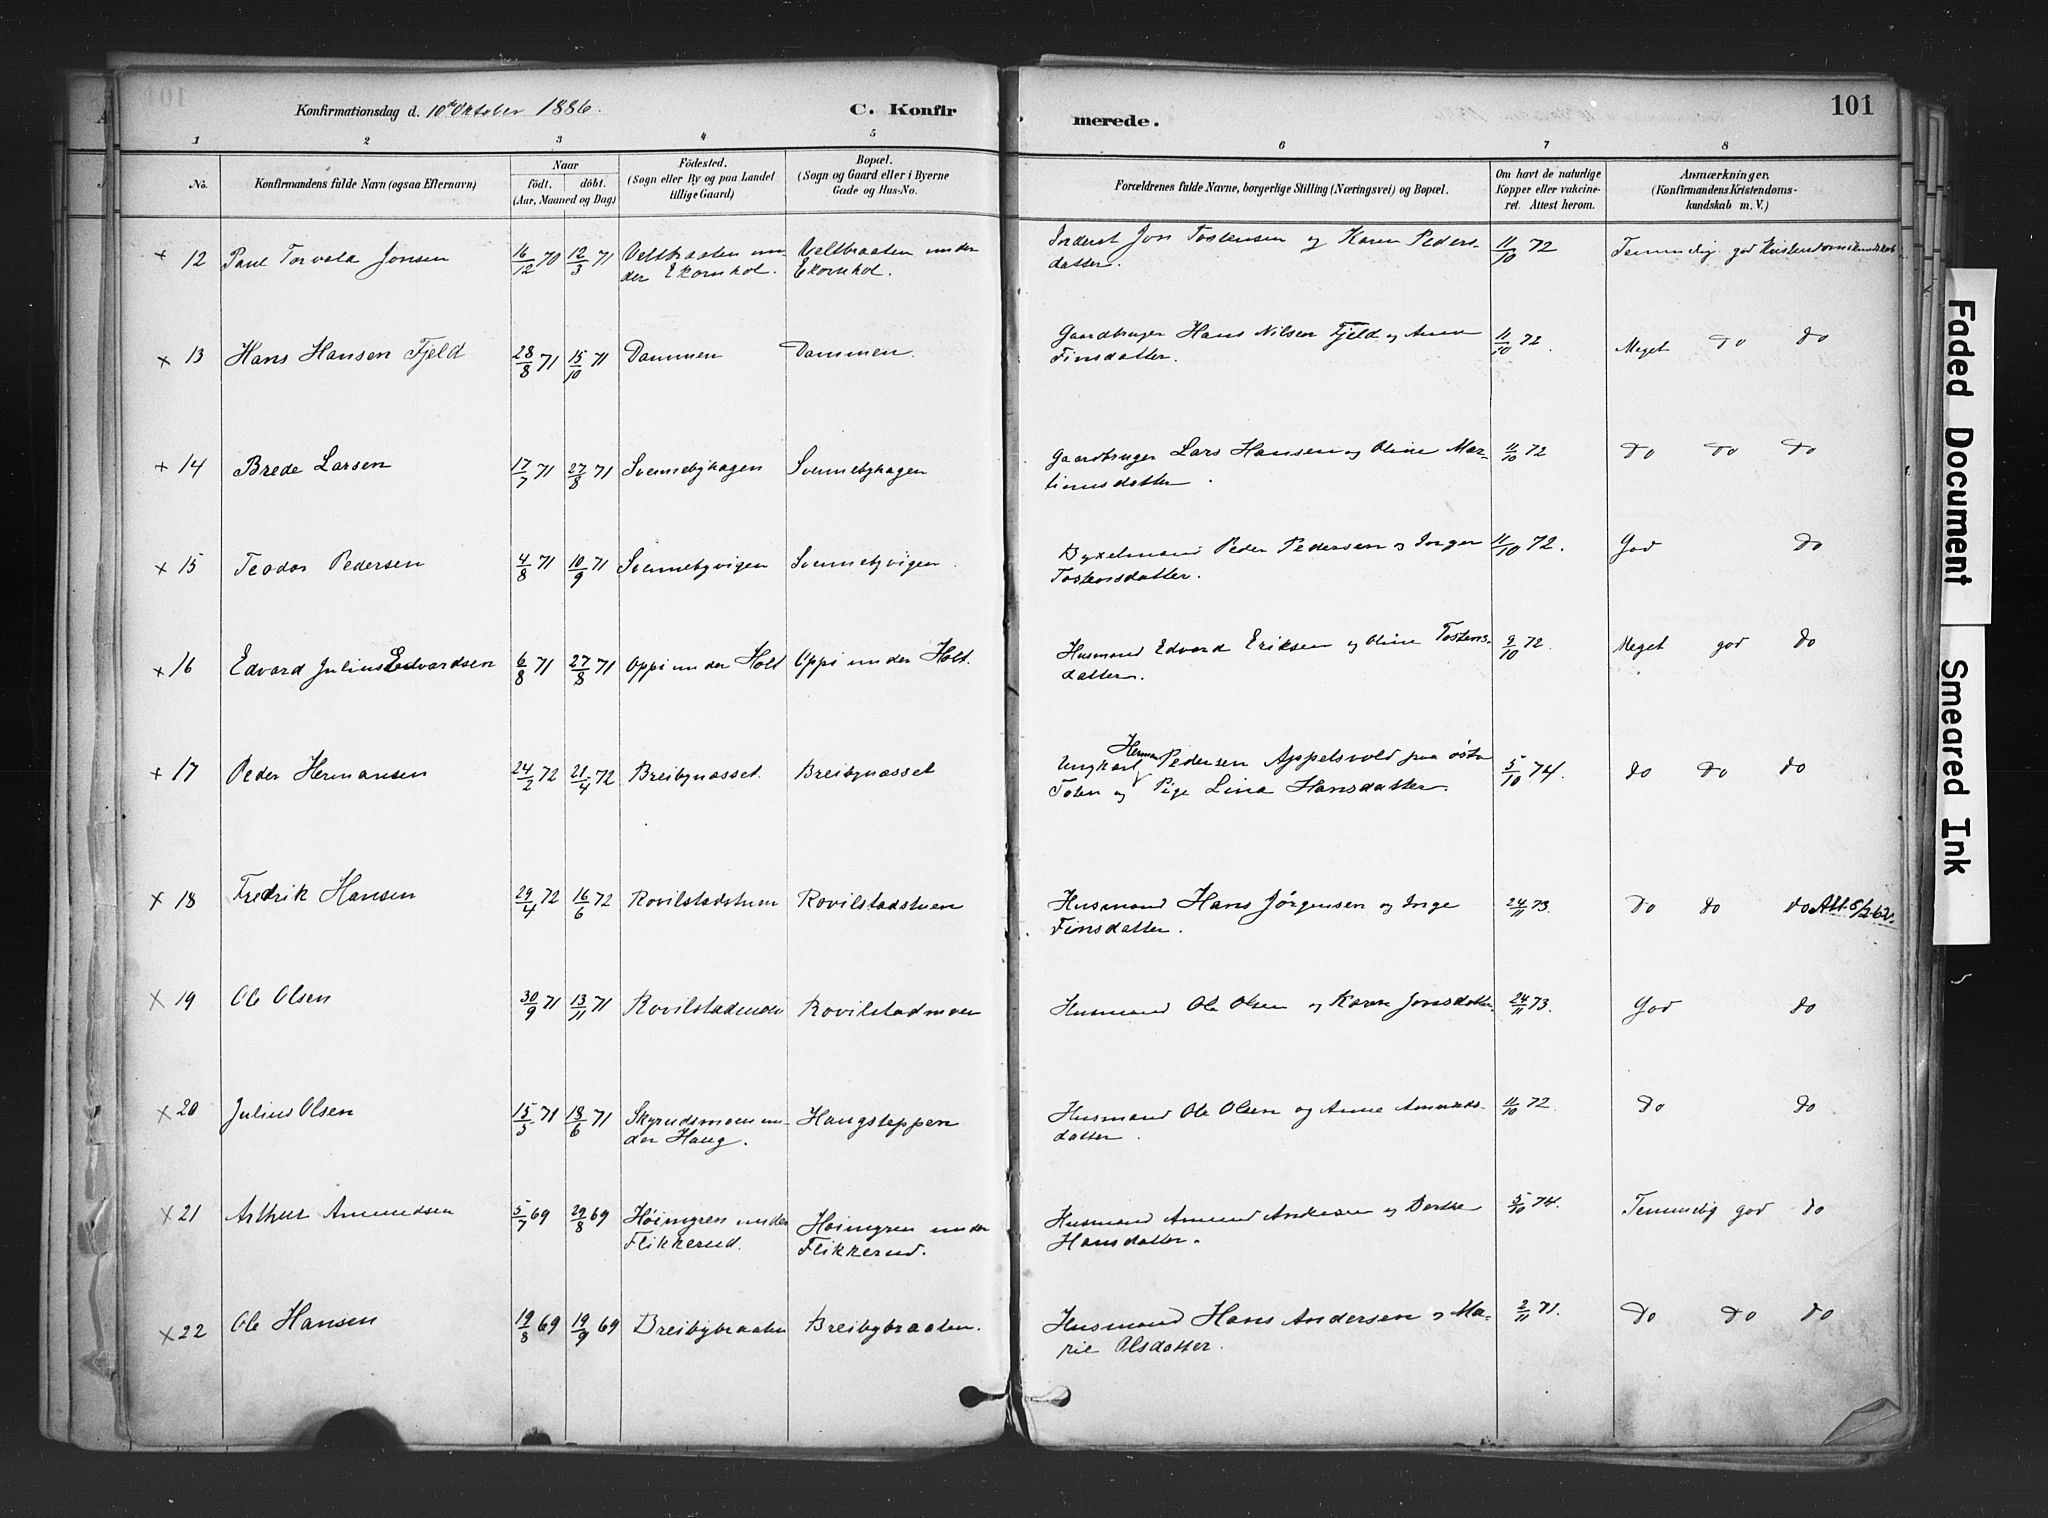 Konfirmationsdag d. 10de Oktober 1886.
C. Konfirmerede.
101
1 2 3 4 5 6 7 8
No.
Konfirmandens fulde Navn (ogsaa Efternavn)
Naar
født. døbt.
(Aar, Maaned og Dag)
Fødested.
(Sogn eller By og paa Landet tillige Gaard)
Bopæl.
(Sogn og Gaard eller i Byerne Gade og Hus-No.
Forældrenes fulde Navne, borgerlige Stilling (Næringsvei) og Bopæl.
Om havt de naturlige Kopper eller vakcineret. Attest herom.
Anmærkninger,
(Konfirmandens Kristendomskundskab m. V.)
× 12 Paul Torvald Jonsen 16/12 70 12/3 71 Veltbraaten under Ekornhol. Veltbraaten under Ekornhol. Inderst Jon Tostensen og Karen Pedersdatter. 11/10 72 Temmelig god Kristendomskundskab
× 13 Hans Hansen Fjeld 28/8 71 15/10 71 Dammen Dammen. Gaardbruger Hans Nilsen Fjeld og Anne Finsdatter. 11/10 72. Meget do do
× 14 Brede Larsen 17/7 71 27/8 71 Svennebyhagen Svennebyhagen Gaardbruger Lars Hansen og Oline Martinusdatter. 11/10 72 do do do
× 15 Teodor Pedersen 4/8 71 10/9 71 Svennebyvigen Svennebyvigen. Byxelmand Peder Pedersen og Inger Tostensdatter. 11/10 72. God do
× 16 Edvard Julius Edvardsen 6/8 71 27/8 71 Oppi under Holt Oppi under Holt. Husmand Edvard Eriksen og Oline Tostensdatter. 9/10 72. Meget god do
× 17 Peder Hermansen 24/2 72 21/4 72 Breibynæsset. Breibynæsset Ungkarl Herman Pedersen Appelsvold paa østre Toten og Pige Lina Hansdatter. 5/10 74. do do do
× 18 Fredrik Hansen 29/4 72 16/6 72 Rovilstadstuen Rovilstadstuen Husmand Hans Jørgensen og Inge Finsdatter. 24/11 73. do do do Att. 5/2 62.
× 19 Ole Olsen 30/9 71 13/11 71 Rovilstadmoen Husmand Ole Olsen og Karen Jonsdatter. 24/11 73. God do
× 20 Julius Olsen 15/5 71 18/6 71 Skyrudsmoen under Haug. Haugsteppen Husmand Ole Olsen og Anne Amundsdatter. 11/10 72. do do
× 21 Arthur Amundsen 5/7 69 29/8 69 Høimyren under Flikkerud. Høimyren under Flikkerud. Husmand Amund Andersen og Dorthe Hansdatter. 5/10 74. Temmelig god do
× 22 Ole Hansen 19/8 69 19/9 69 Breibybraaten Breibybraaten. Husmand Hans Andersen og Marie Olsdatter. 2/11 71. do do do
Faded Document
Smeared Ink